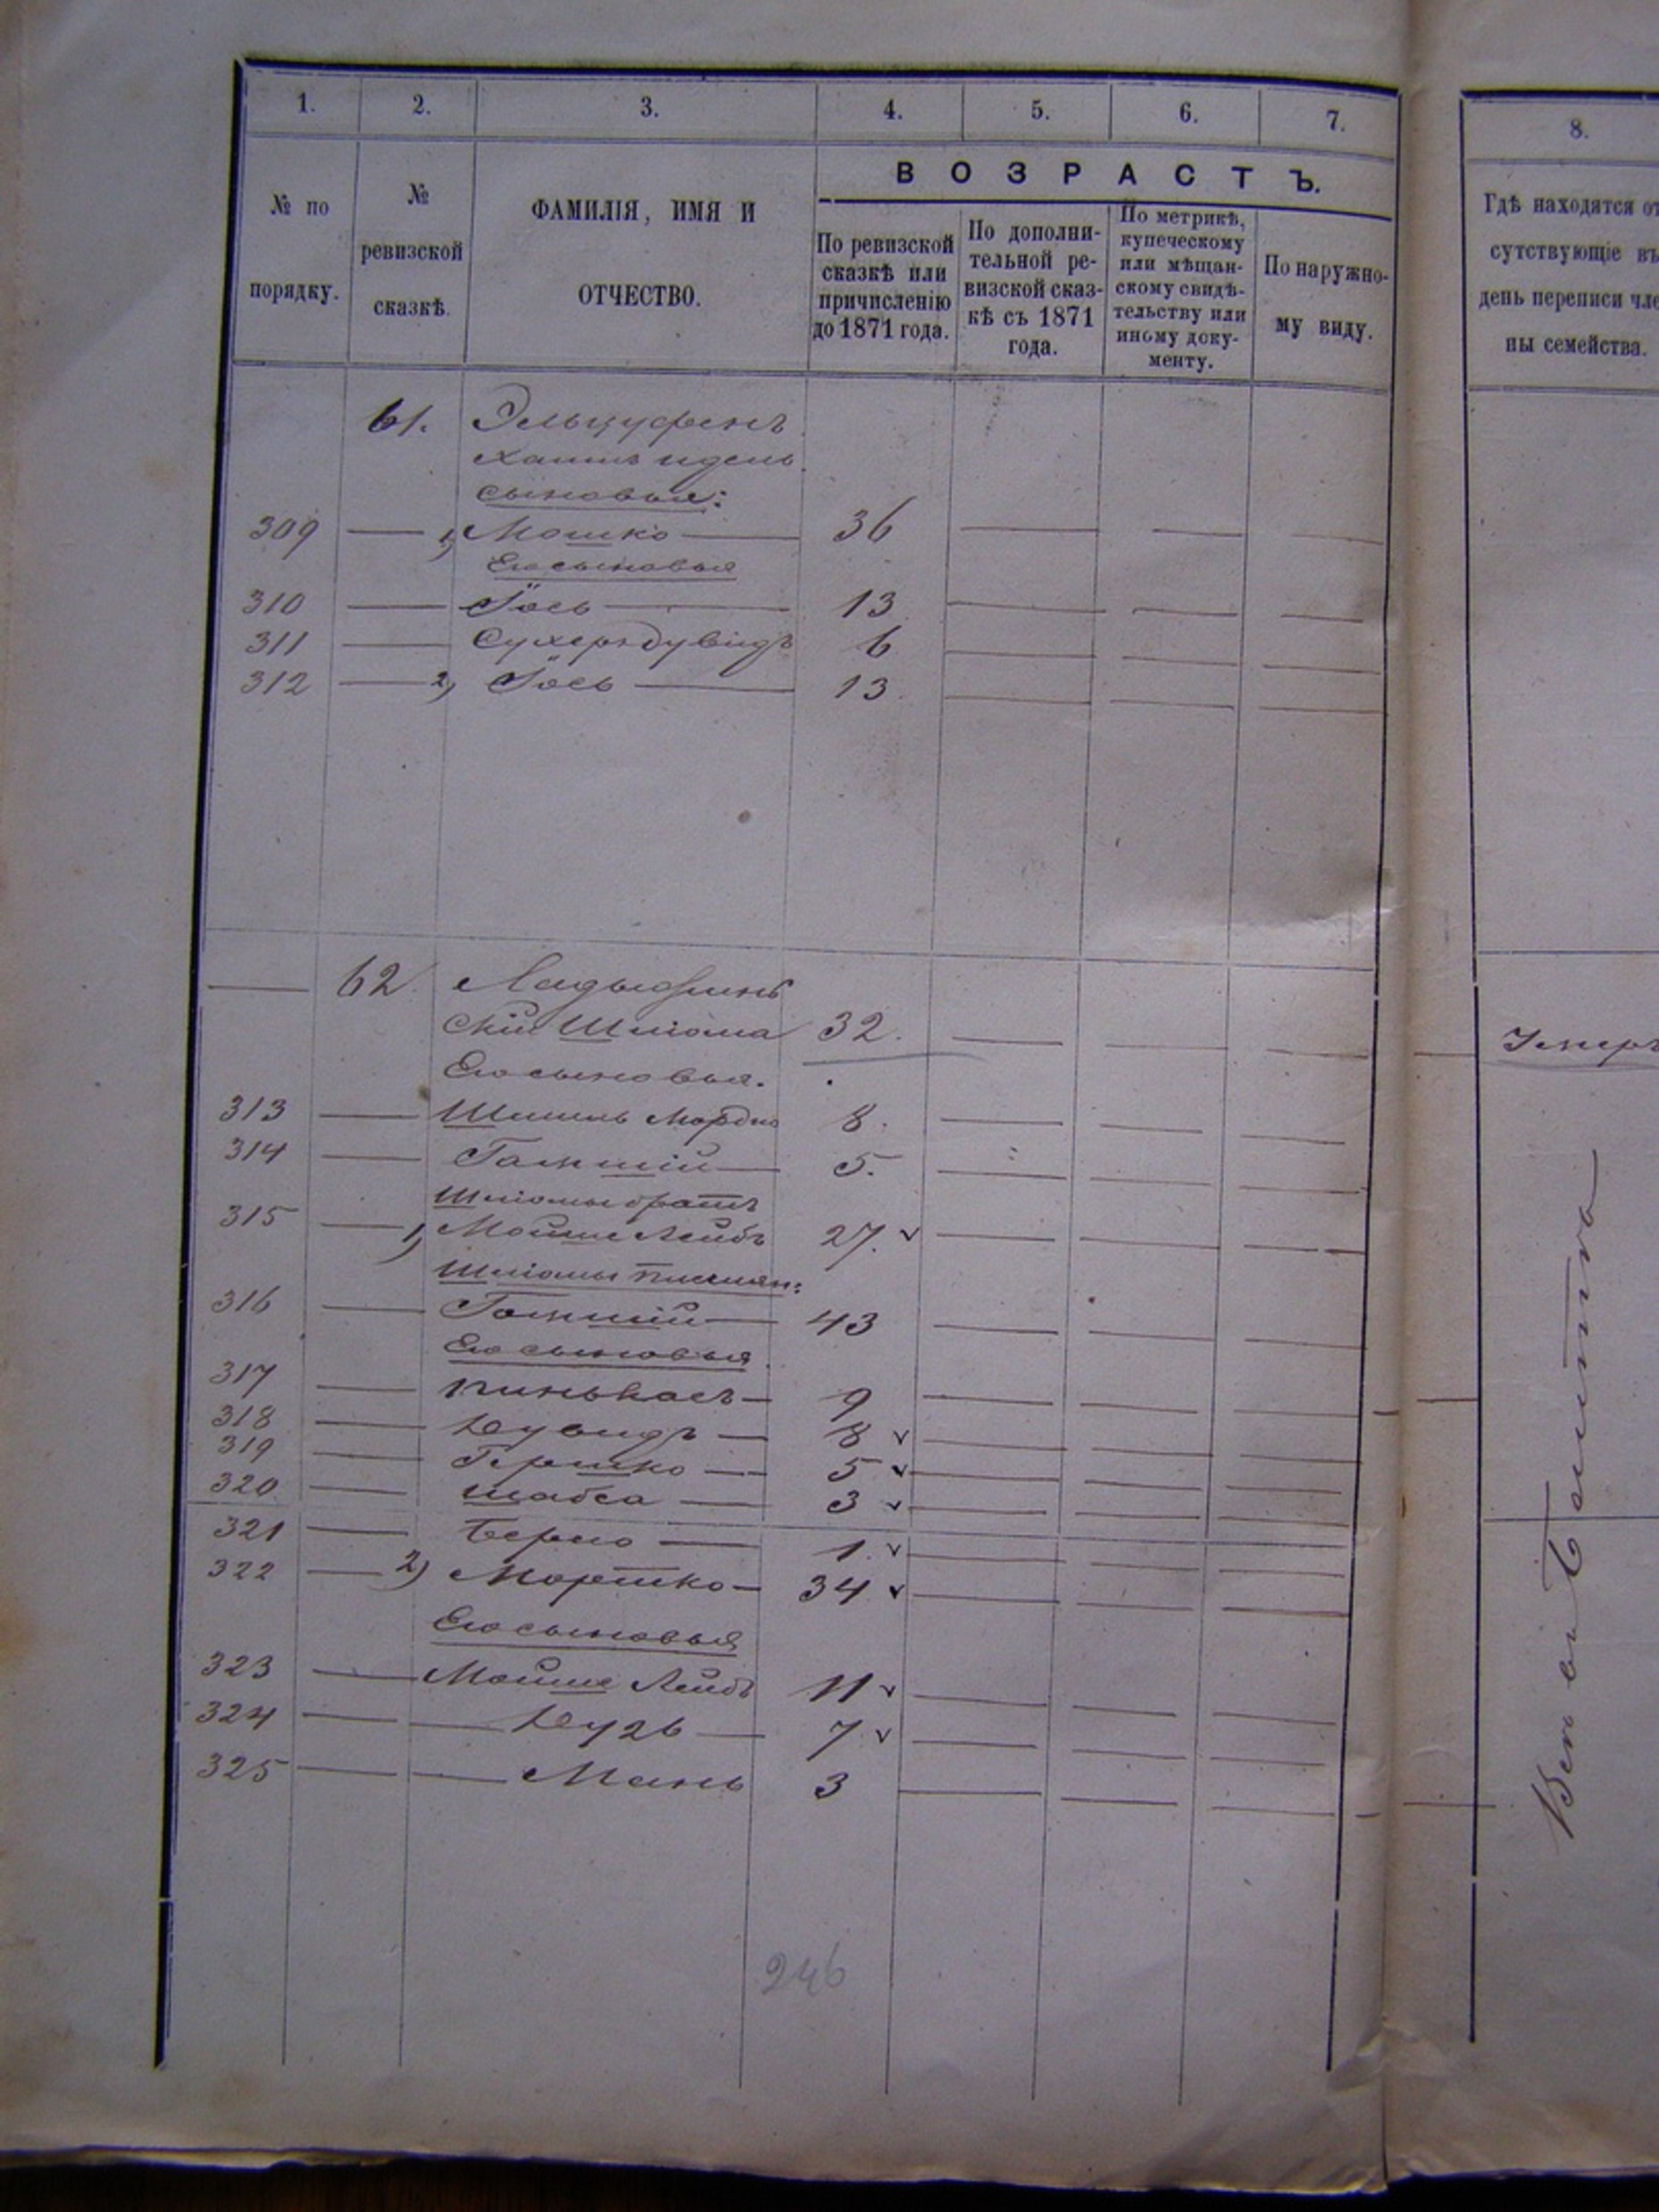 1. 2. 3. 4. 5. 6. 7. 8.
№ по порядку.
№ ревизской сказкѣ.
ФАМИЛІЯ, ИМЯ И ОТЧЕСТВО.
ВОЗРАСТЪ.
По ревизской сказкѣ или причисленію до 1871 года.
По дополни-
тельной ре-
визской сказ-
кѣ съ 1871
года.
По метрикѣ,
купеческому
или мѣщан-
скому свидѣ-
тельству или
иному доку-
менту.
По наружно-
му виду.
Гдѣ находятся от
сутствующіе въ
день переписи чле
ны семейства.
61. Эльцуфенъ
Хаимъ Идель
сыновья:
309 1) Мошко 36
Его сыновья
310 Іось 13
311 Сухеръ Дувидъ 6
312 2) Іось 13
62 Ладыжин
скій Шліома 32.
Его сыновья.
313 Шмиль Мордко 8.
314 5.
Шліомы братъ
315 1) Мойше Лейбъ 27.
Шліомы
316 43
Его сыновья
317 Пинькасъ 9
318 Дувидъ 8
319 Гершко 5
320 Шабса 3
321 Берко 1.
322 2) Мортко 34
Его сыновья
323 Мойше Лейбъ 11
324 7
325 Мань 3
246
Умеръ